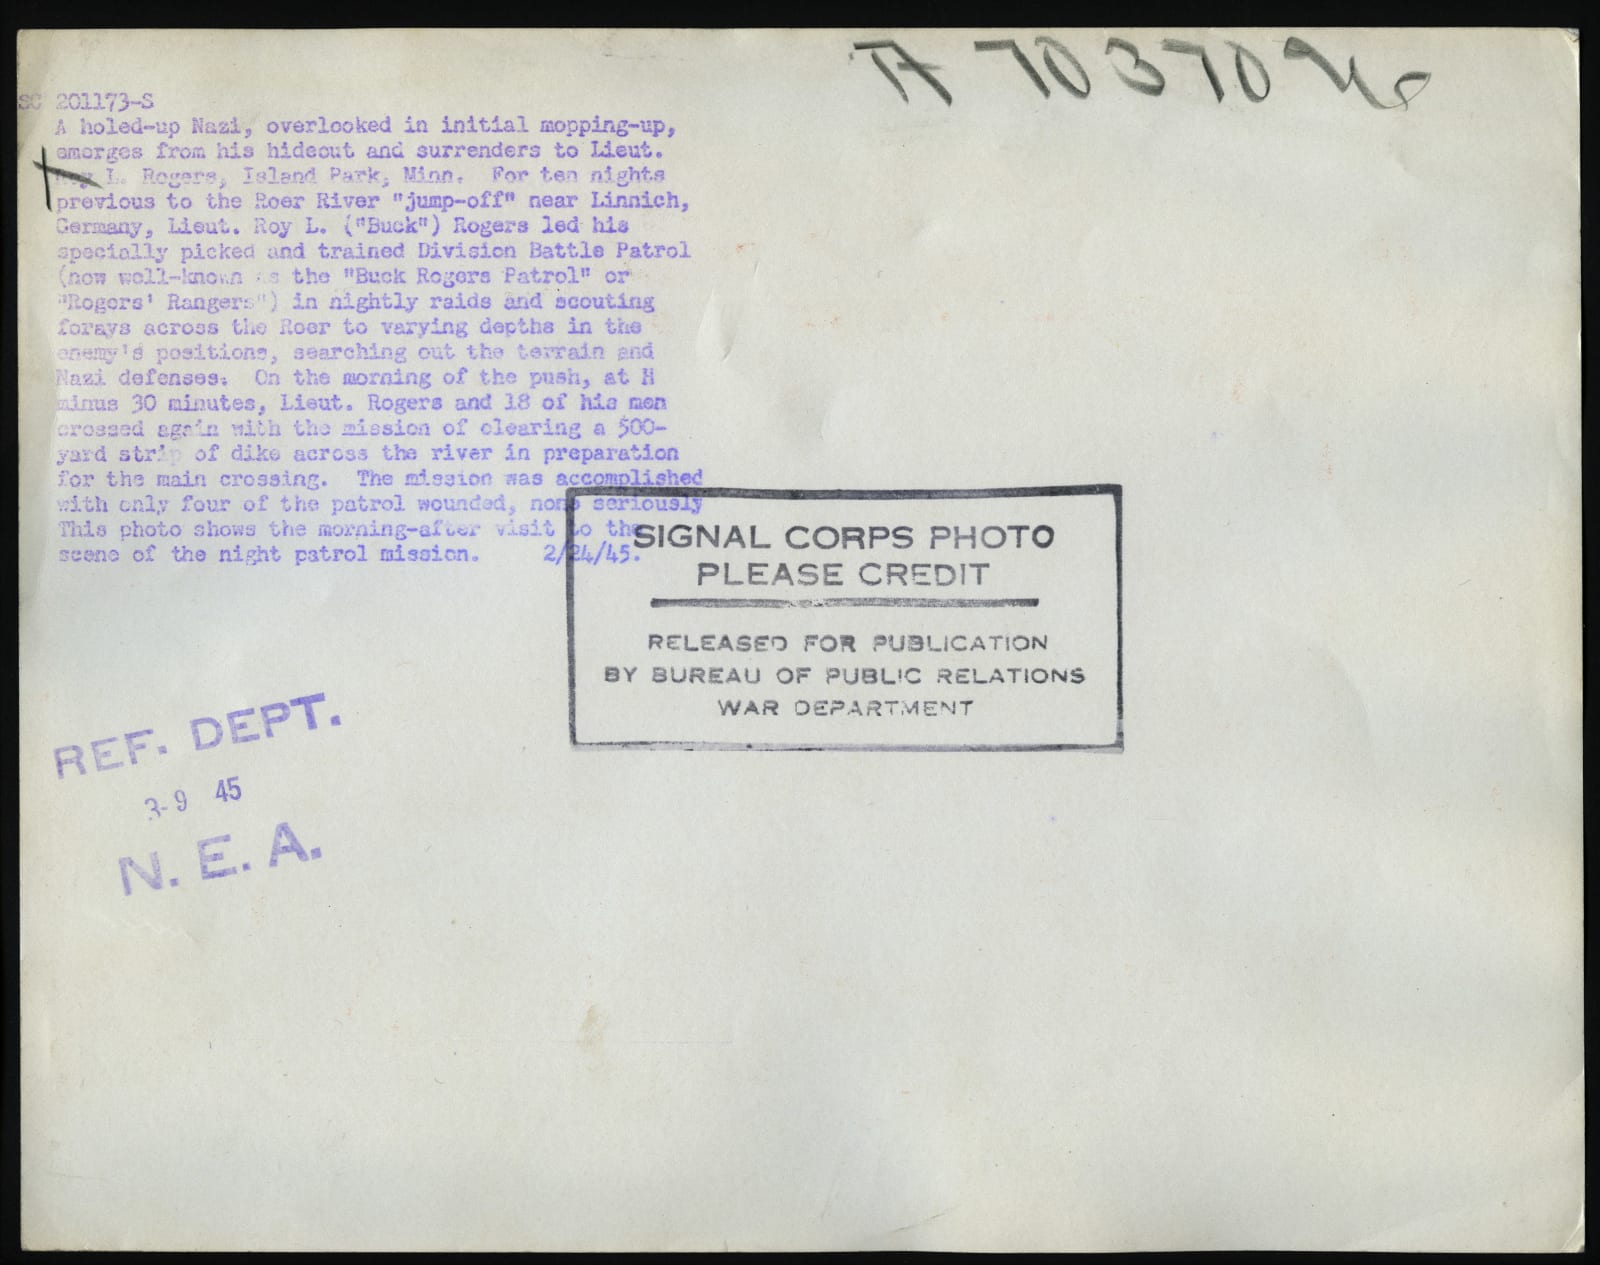 SC 201173-S
A holed-up Nazi, overlooked in initial mopping-up,
emerges from his hideout and surrenders to Lieut.
Roy L. Rogers, Island Park, Minn. For ten nights
previous to the Roer River "jump-off" near Linnich,
Germany, Lieut. Roy L. ("Buck") Rogers led his
specially picked and trained Division Battle Patrol
(now well-known as the "Buck Rogers Patrol" or
"Rogers' Rangers") in nightly raids and scouting
forays across the Roer to varying depths in the
enemy's positions, searching out the terrain and
Nazi defenses. On the morning of the push, at H
minus 30 minutes, Lieut. Rogers and 18 of his men
crossed again with the mission of clearing a 500-
yard strip of dike across the river in preparation
for the main crossing. The mission was accomplished
with only four of the patrol wounded, none seriously
This photo shows the morning-after visit to the
scene of the night patrol mission. 2/24/45.
SIGNAL CORPS PHOTO
PLEASE CREDIT
RELEASED FOR PUBLICATION
BY BUREAU OF PUBLIC RELATIONS
WAR DEPARTMENT
REF. DEPT.
3-9 45
N. E. A.